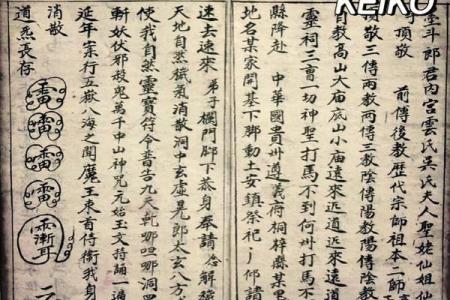 KEIKO
斗郎君內宮雲氏吳氏夫人聖姥仙姐仙
可頂敬 前傳後教歷代宗師祖本二師
頂敬三傳兩教兩傳三教陰傳陽教陽傳陰教
自敬高山大庙底山小庙遠來近道近來遠道
靈祠三曹一切神聖打馬不到何州打馬不
縣降赴 中華國貴州遵義府桐梓縣某里
地名某家門基下脚動土安鎮祭祀 仰請
速去速來 弟子攔門脚下恭身奉請 念解穢
天地自然穢氣消散洞中玄虛晃郎太玄八方
使我自然靈寶符令普告九天乾哪呾哪洞罡
斬妖伏邪殺鬼萬千中山神咒元始玉文持誦一遍
延年 宗行五嶽八海之聞魔王束首侍衛我身
消散
道炁長存